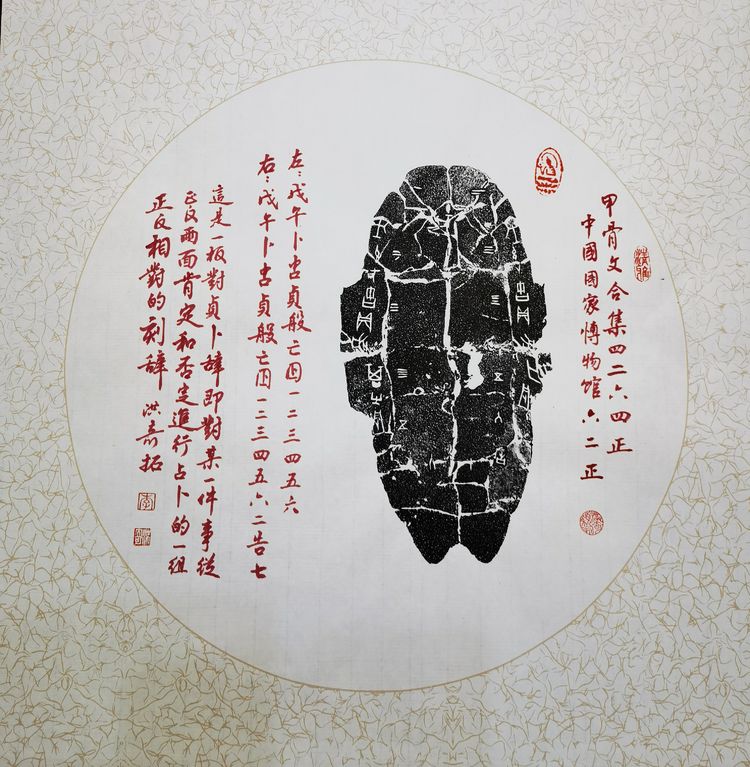 甲骨文合集四二六四正
中國国家博物馆六二正
左：戊午卜古貞般亡囚一二三四五六
右：戊午卜古貞般亡囚一二三四五六二告七
這是一板對貞卜辞即對某一件事從
正反两面肯定和否定進行占卜的一组
正反相對的刻辞 洪嘉拓